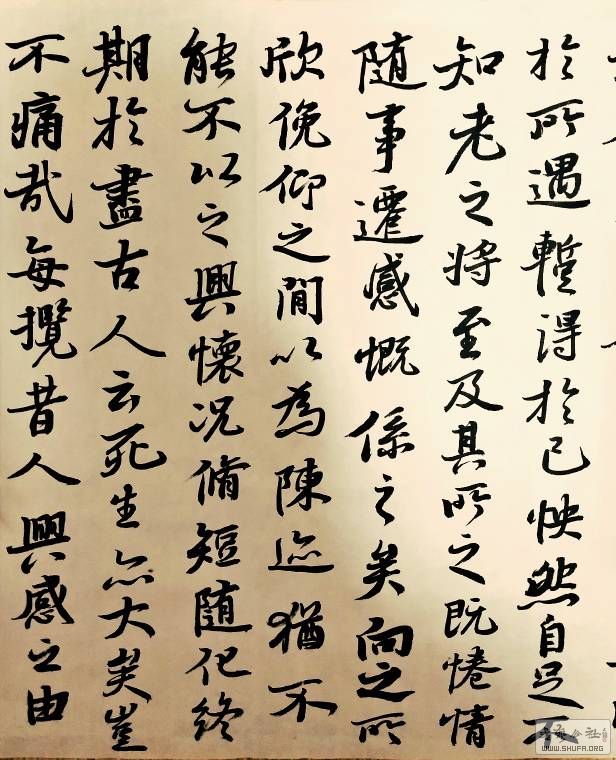 於所遇暫得於己怏然自足不
知老之將至及其所之既惓情
隨事遷感慨係之矣向之所
欣俛仰之閒以為陳迹猶不
能不以之興懷況脩短隨化終
期於盡古人云死生亦大矣豈
不痛哉每攬昔人興感之由
WWW.SHUFA.ORG